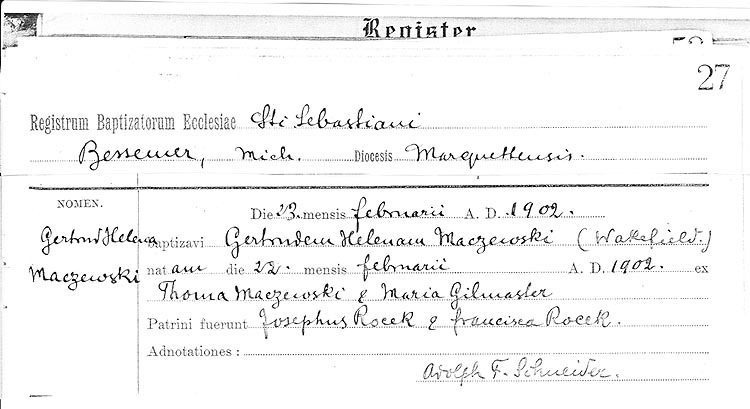 Register
27
Registrum Baptizatorum Ecclesiae Sti Sebastiani
Bessemer, Mich. Diocesis Marquettensis.
NOMEN.
Gertrud Helena
Maczewski
Die 23. mensis februarii A. D. 1902.
baptizavi Gertrudem Helenam Maczewski (Wakefield.)
nat am die 22. mensis februarii A. D. 1902. ex
Thoma Maczewski & Maria Gilmaster
Patrini fuerunt Josephus Rocek & francisca Rocek.
Adnotationes :
Adolph F. Schneider.